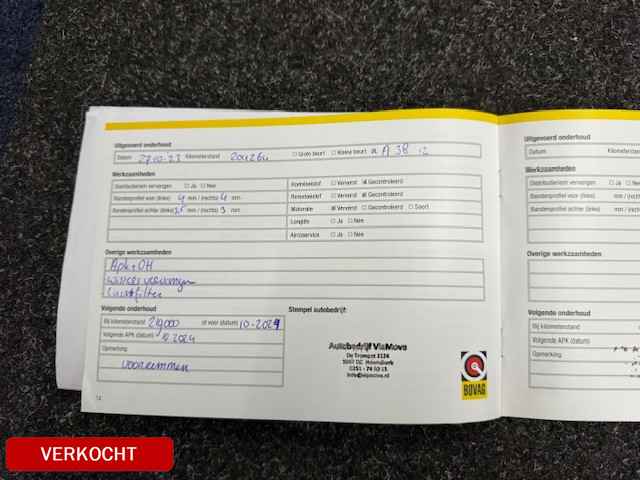 Uitgevoerd onderhoud
Datum 27-10-23 Kilometerstand 204264 □ Grote beurt □ Kleine beurt
Werkzaamheden
Distributieriem vervangen □ Ja □ Nee
Bandenprofiel voor (links) 4 mm / (rechts) 4 mm
Bandenprofiel achter (links) mm / (rechts) 3 mm
Koelvloeistof □ Ververst Gecontroleerd
Remvloeistof □ Ververst Gecontroleerd
Motorolie Ververst □ Gecontroleerd □ Soort:
Longlife □ Ja □ Nee
Aircoservice □ Ja □ Nee
Overige werkzaamheden
Apk + OH
wissers vervangen
Luchtfilter
Volgende onderhoud
Bij kilometerstand 219000 of voor (datum) 10-2024
Volgende APK (datum) 10 2024
Opmerking
voorremmen
Stempel autobedrijf:
Autobedrijf ViaMove
De Trompet
info@viamove.nl
BOVAG
Uitgevoerd onderhoud
Datum Kilometerstand
Werkzaamheden
Distributieriem vervangen □ Ja □
Bandenprofiel voor (links)
Bandenprofiel achter (links)
Overige werkzaamheden
Volgende onderhoud
Bij kilometerstand
Volgende APK (datum)
Opmerking
VERKOCHT